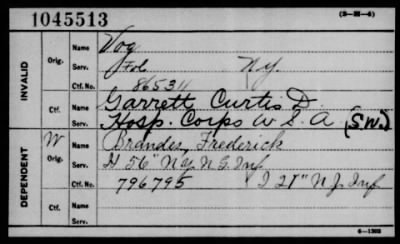 1045513
(3-211-4)
INVALID
Orig.
Name Vog
Serv. Fol N.Y.
Ctf. No. 865311
Ctf.
Name Garrett Curtis D.
Serv. Hosp. Corps U.S.A. (S.W.)
DEPENDENT
W
Orig.
Name Brandes, Frederick
Serv. H 56" N.Y. N.G. Inf
Ctf. No. 796795 I 21" N.J. Inf
Ctf.
Name
Serv.
6-1302